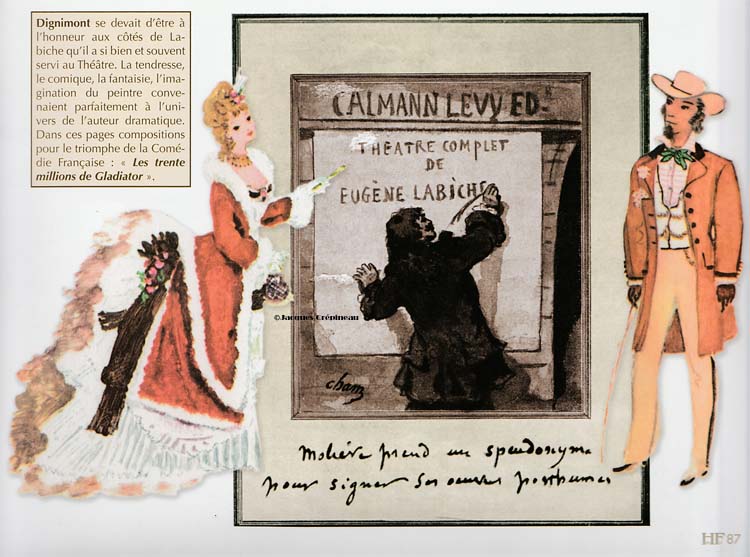 Dignimont se devait d'être à
l'honneur aux côtés de La-
biche qu'il a si bien et souvent
servi au Théâtre. La tendresse,
le comique, la fantaisie, l'ima-
gination du peintre conve-
naient parfaitement à l'uni-
vers de l'auteur dramatique.
Dans ces pages compositions
pour le triomphe de la Comé-
die Française : « Les trente
millions de Gladiator ».
CALMANN LEVY ED.R
THEATRE COMPLET
DE
EUGÈNE LABICHE
©Jacques Crépineau
cham
Molière prend un speudonyme
pour signer ses oeuvres posthumes
HF 87